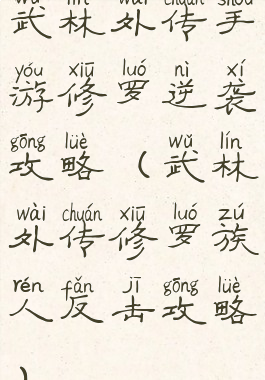 wǔ lín wài chuán shǒu
武林外传手
yóu xiū luó nì xí
游修罗逆袭
gōng lüè wǔ lín
攻略（武林
wài chuán xiū luó zú
外传修罗族
rén fǎn jī gōng lüè
人反击攻略
）